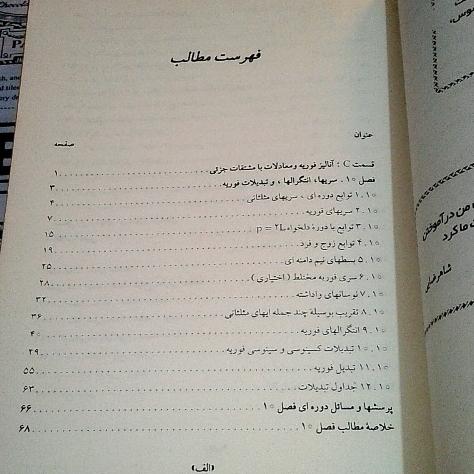 فهرست مطالب
عنوان صفحه
قسمت C : آنالیز فوریه و معادلات با مشتقات جزئی ۱
فصل ۱۰. سریها، انتگرالها، و تبدیلات فوریه ۳
۱۰.۱ توابع دوره ای، سریهای مثلثاتی ۴
۱۰.۲ سریهای فوریه ۷
۱۰.۳ توابع با دورهٔ دلخواه p = ۲L ۱۵
۱۰.۴ توابع زوج و فرد ۱۹
۱۰.۵ بسطهای نیم دامنه ای ۲۵
۱۰.۶ سری فوریه مختلط (اختیاری) ۲۸
۱۰.۷ نوسانهای واداشته ۳۲
۱۰.۸ تقریب بوسیلهٔ چند جمله ایهای مثلثاتی ۳۶
۱۰.۹ انتگرالهای فوریه ۴۰
۱۰.۱۰ تبدیلات کسینوسی و سینوسی فوریه ۴۹
۱۰.۱۱ تبدیل فوریه ۵۵
۱۰.۱۲ جداول تبدیلات ۶۳
پرسشها و مسائل دوره ای فصل ۱۰ ۶۶
خلاصهٔ مطالب فصل ۱۰ ۶۸
(الف)
من در آموختن
ما کرد